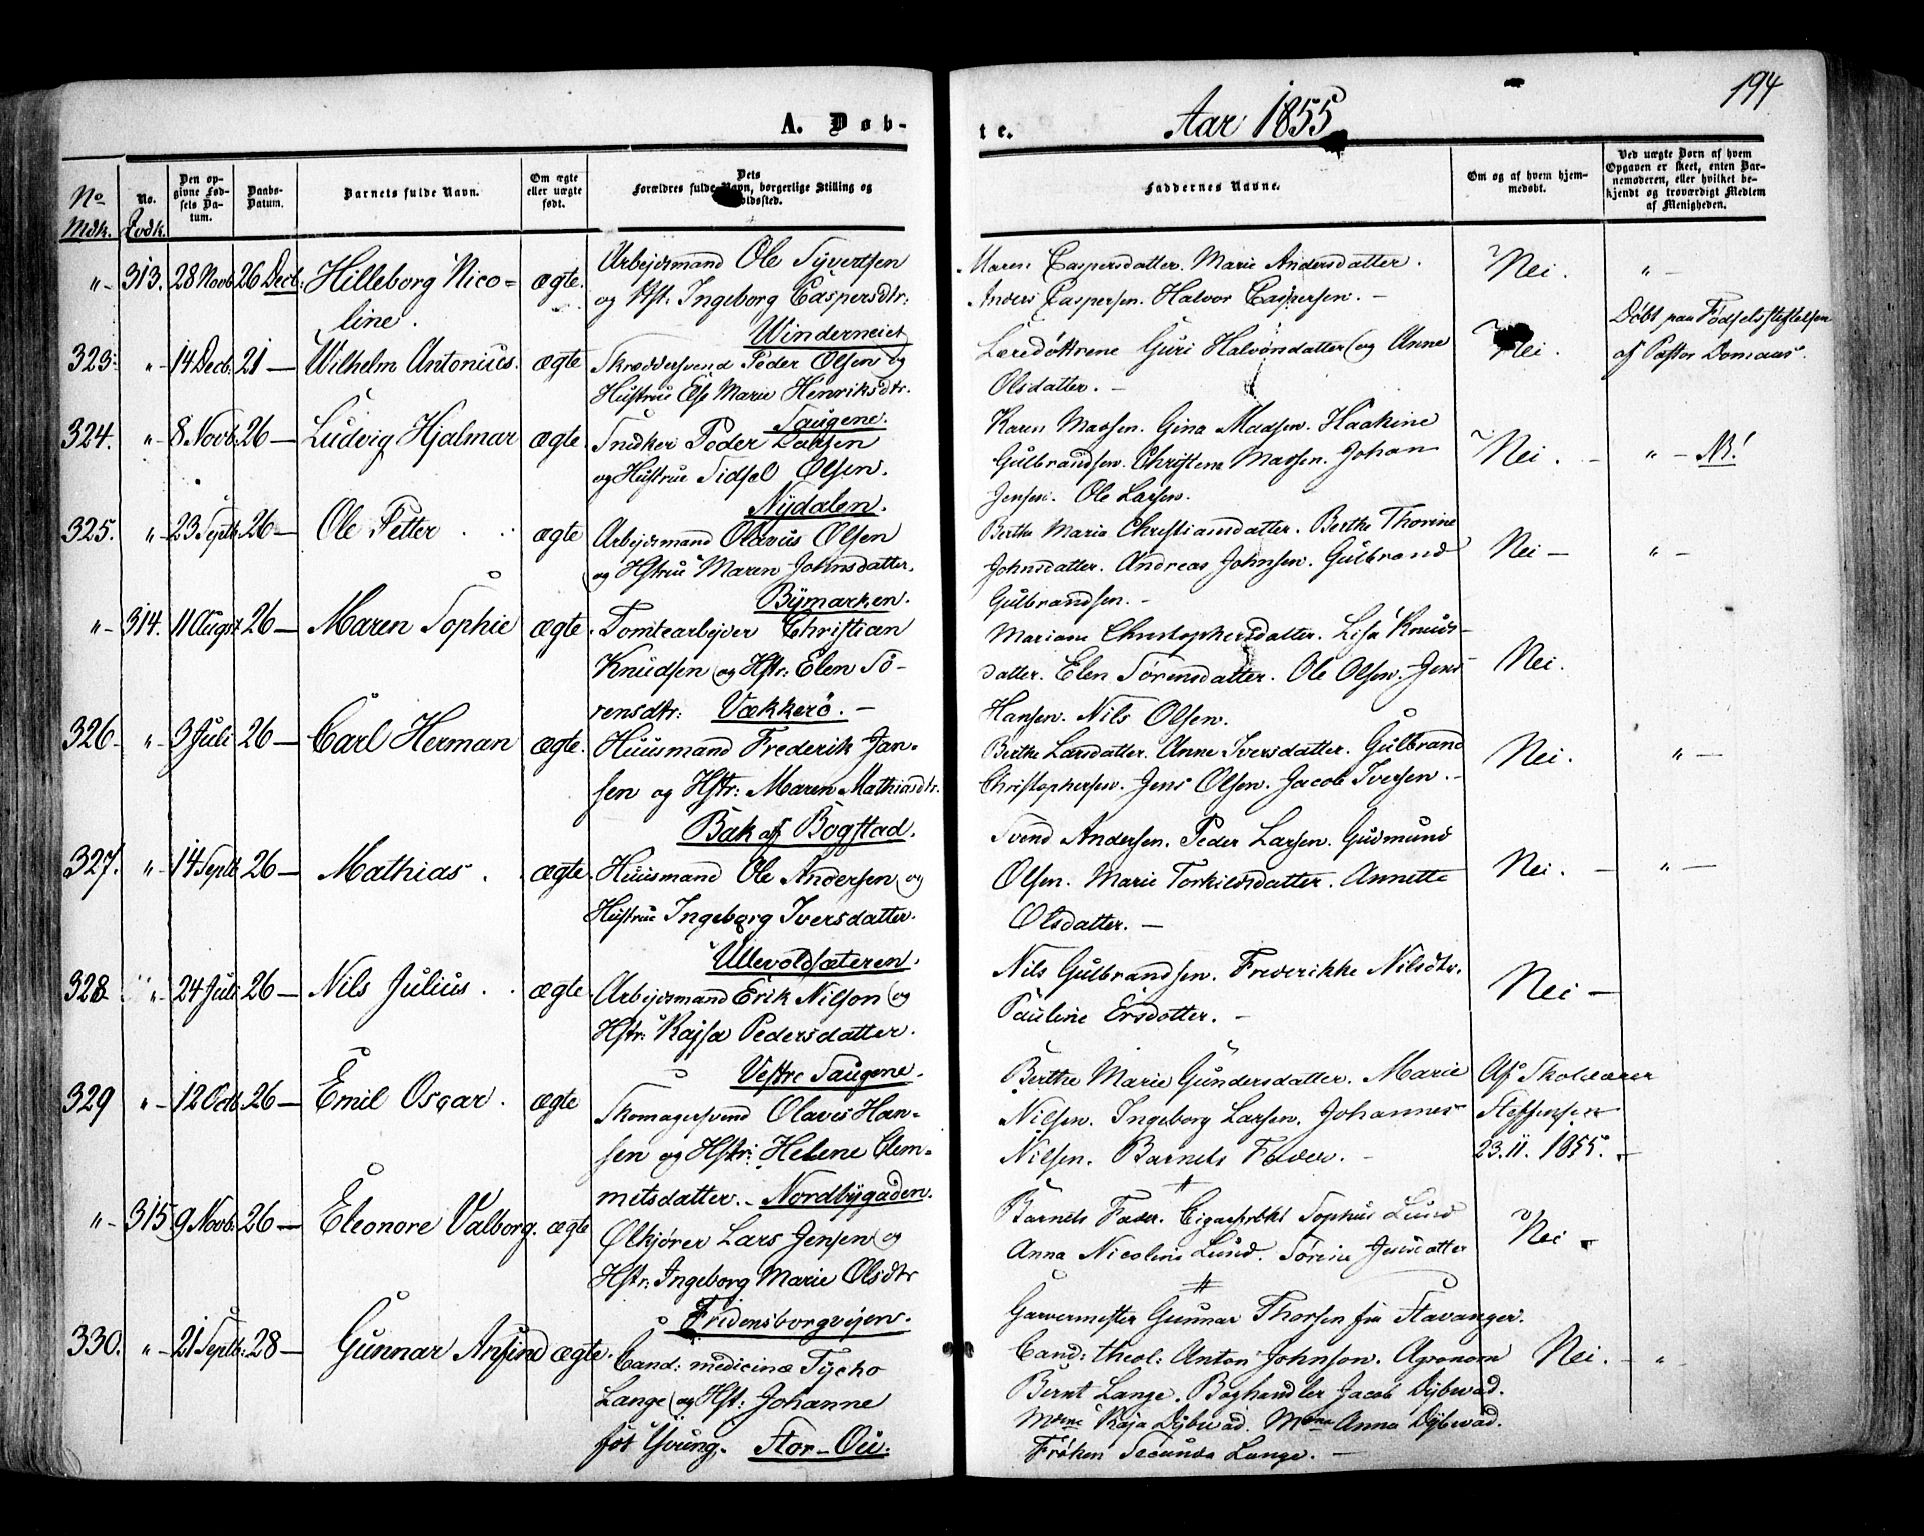 194
A. Døb-
te.
Aar 1855
No Mdk.
No. Qvdk.
Den opgivne Fødsels Datum.
Daabs-Datum.
Barnets fulde Navn.
Om ægte eller uægte født.
Dets Forældres fulde Navn, borgerlige Stilling og Boldosted.
Faddernes Navne.
Om og af hvem hjemmedøbt.
Ved uægte Børn af hvem Opgaven er skeet, enten Barnemoderen, eller hvilket bekjendt og troværdigt Medlem af Menigheden.
" 313. 28 Novb. 26 Decb: Hilleborg Nico-
line.
ægte.
Arbejdsmand Ole Syvertsen
og Hst: Ingeborg Caspersdtr:
Winderneiet
Maren Caspersdatter. Marie Andersdatter.
Anders Caspersen. Halvor Caspersen. —
Nei.
" —
323. " 14 Decb. 21 — Wilhelm Antonius.
ægte
Skræddersvend Peder Olsen og
Hustrue Else Marie Henriksdtr.
Saugene.
Læredøttrene Guri Halvorsdatter og Anne
Olsdatter. —
Nei.
Døbt paa Fødselsstiftelsen
af Pastor Domaas.
324. " 8 Novb. 26 — Ludvig Hjalmar
ægte
Snidker Peder Larsen
og Hustrue Sidsel Olsen.
Nydalen.
Karen Massen. Gina Maasen. Haakine
Gulbrandsen. Christene Massen. Johan
Jensen. Ole Larsen.
Nei. —
" —
325. " 23 Septb. 26 — Ole Petter
ægte
Arbejdsmand Olavus Olsen
og Hstrue Maren Johnsdatter.
Bymarken.
Berthe Maria Christiansdatter. Berthe Thorine
Johnsdatter. Andreas Johnsen. Gulbrand
Gulbrandsen. —
Nei —
" —
" 314. 11 August 26 — Maren Sophie
ægte.
Tomtearbejder Christian
Knudsen og Hstr: Elen Sö-
rensdtr: Vækkerö. —
Mariane Christophersdatter. Lisa Knuds-
datter. Elen Sørensdatter. Ole Olsen. Jens
Hansen. Nils Olsen.
Nei.
326. " 3 Juli 26 — Carl Herman
ægte.
Huusmand Frederik Jan-
sen og Hstr: Maren Mathiasdtr.
Bak af Bogstad.
Berthe Larsdatter. Anne Iversdatter. Gulbrand
Christophersen. Jens Olsen. Jacob Iversen. —
Nei.
" —
327. " 14 Septb. 26 — Mathias.
ægte.
Huusmand Ole Andersen og
Hustrue Ingeborg Iversdatter.
Ullevoldsæteren.
Svend Andersen. Peder Larsen. Gudmund
Olsen. Marie Torkildsdatter. Annette
Olsdatter. —
Nei. —
" —
328 " 24 Juli 26 — Nils Julius.
ægte.
Arbejdsmand Erik Nilson og
Hstr: Kajsa Pedersdatter.
Vestre Saugene.
Nils Gulbrandsen. Frederikke Nilsdtr.
Pauline Ersdotter. —
Nei —
329 " 12 Octb. 26 — Emil Oscar.
ægte
Skomagersvend Olaves Han-
sen og Hstr: Helene Clem-
metsdatter. — Nordbygaden.
Berthe Marie Gundersdatter. Marie
Nilsen. Ingeborg Larsen. Johannes
Nilsen. Barnets Fader. —
Af Skolelærer
Steffensen
23. 11. 1855. —
" 315 9 Novb. 26 — Eleonore Valborg.
ægte
Ølkjører Lars Jensen og
Hstr: Ingeborg Marie Olsdtr
Fridensborgvejen.
Barnets Fader. Cigarfabrkt Sophus Lund
Anna Nicoline Lund. Sörine Jensdatter
Nei
330. " 21 Septb. 28 — Gunnar Ansfind
ægte.
Cand: medicinæ Tycho
Lange og Hst: Johanne
fød Yvung. Stor-Ou.
Garvermester Gunnar Thorsen fra Stavanger.
Cand: theol: Anton Johnson. Agronom
Bernt Lange. Boghandler Jacob Dybwad.
Mdme Kaja Dybwad. Mdme Anna Dybwad.
Frøken Secunda Lange. —
Nei. —
"